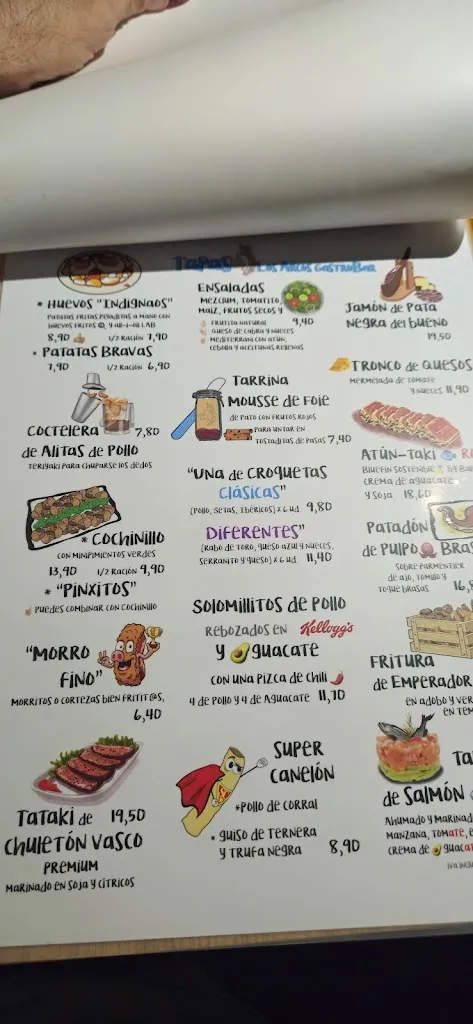 Tapas Los Arcos GastroBar
* Huevos "Indignaos"
Patatas fritas peladitas a mano con
huevos fritos
8,90 1/2 Ración 7,90
* Patatas Bravas
7,90 1/2 Ración 6,90
Coctelera 7,80
de Alitas de Pollo
Teriyaki para chuparse los dedos
* Cochinillo
con minipimientos verdes
13,90 1/2 Ración 9,90
* "Pinxitos"
Puedes combinar con cochinillo
"Morro
Fino"
Morritos o cortezas bien fritit@s,
6,40
Tataki de 19,50
Chuletón Vasco
Premium
Marinado en soja y cítricos
Ensaladas
Mezclum, tomatito,
maíz, frutos secos y 9,40
Frutita natural
Queso de cabra y nueces
Mediterráni con atún,
cebolla y aceitunas rellenas
Tarrina
Mousse de Foie
de pato con frutos rojos
para untar en
tostaditas de pasas 7,40
"Una de Croquetas
Clásicas"
(Pollo, setas, ibéricos) x 6 ud 9,80
Diferentes"
(Rabo de toro, queso azul y nueces,
serranito y queso) x 6 ud. 11,40
Solomillitos de Pollo
rebozados en Kellogg's
y aguacate
con una pizca de chili
4 de pollo y 4 de aguacate 11,70
Super
Canelón
*Pollo de corral
* Guiso de ternera
y trufa negra 8,90
Jamón de Pata
Negra del bueno
19,50
Tronco de Quesos
Mermelada de tomate
y nueces 11,90
Atún-Taki
Bluefin sostenible by Bal
crema de aguacate
y soja 18,60
Patadón
de Pulpo Bras
sobre parmentier
de ajo, tomillo y
toque brasas. 16,8
Fritura
de Emperador
en adobo y ver
en tem
Ta
de Salmón
Ahumado y marinad
manzana, tomate, e
crema de aguacat
IVA inclu